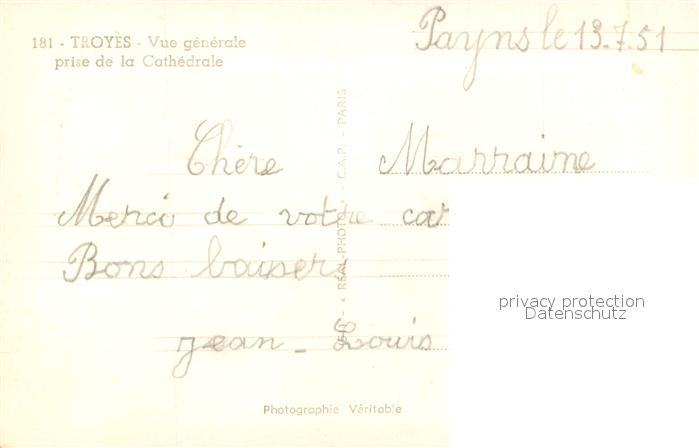 181 - TROYES - Vue générale
prise de la Cathédrale
Payns le 13.7.51
Chère Marraine
Merci de votre
Bons baisers
Jean - Louis
"RÉAL-PHOTO" - C.A.P. - PARIS
Photographie Véritable
privacy protection
Datenschutz